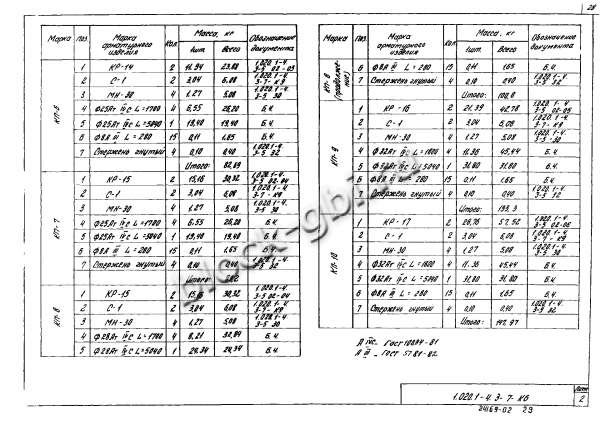 28
Марка Поз. Марка арматурного изделия Кол. Масса, кг Обозначение документа
1шт. Всего
КП-5
1 КР-14 2 11,94 23,88 1.020.1-4. 3-5 02-03
2 С-1 2 3,04 6,08 1.020.1-4 3-7-К9
3 МН-30 4 1,27 5,08 1.020.1-4. 3-5 30
4 Ф25Ат IVС L=1700 4 6,55 26,20 Б.ч.
5 Ф25Ат IVС L=5040 1 19,40 19,40 Б.ч.
6 Ф8А III L=280 15 0,11 1,65 Б.ч.
7 Стержень гнутый 4 0,10 0,40 1.020.1-4. 3-5 32
Итого: 82,69
КП-7
1 КР-15 2 15,16 30,32 1.020.1-4. 3-5 02-04
2 С-1 2 3,04 6,08 1.020.1-4 3-7-К9
3 МН-30 4 1,27 5,08 1.020.1-4. 3-5 30
4 Ф25Ат IVС L=1700 4 6,55 26,20 Б.ч.
5 Ф25Ат IVС L=5040 1 19,40 19,40 Б.ч.
6 Ф8А III L=280 15 0,11 1,65 Б.ч.
7 Стержень гнутый 4 0,10 0,40 1.020.1-4. 3-5 32
Итого:
КП-8
1 КР-15 2 15,16 30,32 1.020.1-4. 3-5 02-04
2 С-1 2 3,04 6,08 1.020.1-4. 3-7-К9
3 МН-30 4 1,27 5,08 1.020.1-4. 3-5 30
4 Ф28Ат IVС L=1700 4 8,21 32,84 Б.ч.
5 Ф28Ат IVС L=5040 1 24,34 24,34 Б.ч.
Марка Поз. Марка арматурного изделия Кол. Масса, кг Обозначение документа
1шт. Всего
КП-8 (продолжение)
6 Ф8А III L=280 15 0,11 1,65 Б.ч.
7 Стержень гнутый 4 0,10 0,40 1.020.1-4. 3-5 32
Итого: 100,8
КП-9
1 КР-16 2 21,39 42,78 1.020.1-4 3-5 02-05
2 С-1 2 3,04 6,08 1.020.1-4. 3-7-К9
3 МН-30 4 1,27 5,08 1.020.1-4. 3-5 30
4 Ф32Ат IVС L=1800 4 11,36 45,44 Б.ч.
5 Ф32Ат IVС L=5040 1 31,80 31,80 Б.ч.
6 Ф8А III L=280 15 0,11 1,65 Б.ч.
7 Стержень гнутый 4 0,10 0,40 1.020.1-4. 3-5 32
Итого: 133,3
КП-10
1 КР-17 2 28,76 57,52 1.020.1-4. 3-5 02-06
2 С-1 2 3,04 6,08 1.020.1-4. 3-7-К9
3 МН-30 4 1,27 5,08 1.020.1-4. 3-5 30
4 Ф32Ат IVС L=1800 4 11,36 45,44 Б.ч.
5 Ф32Ат IVС L=5040 1 31,80 31,80 Б.ч.
6 Ф8А III L=280 15 0,11 1,65 Б.ч.
7 Стержень гнутый 4 0,10 0,40 1.020.1-4. 3-5 32
Итого: 147,97
А IVС. Гост 10884-81
А III - Гост 5781-82
1.020.1-4. 3-7-К6
Лист
2
24169-02 29